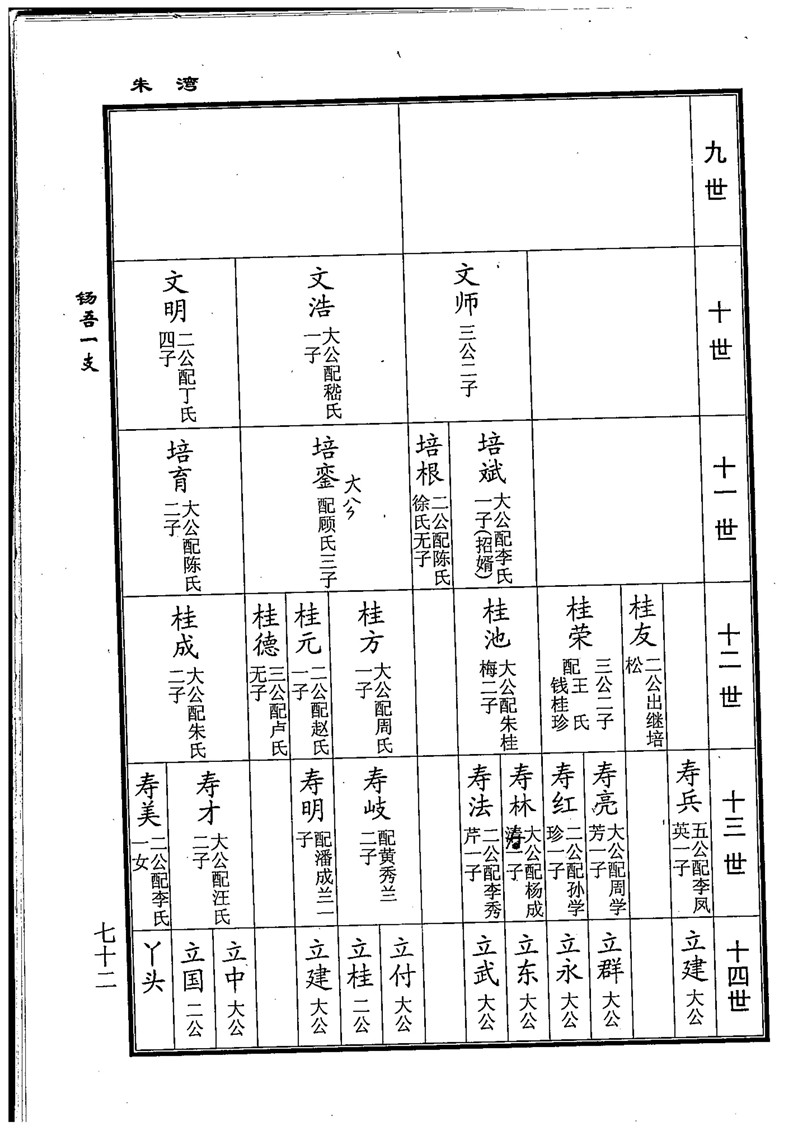 朱湾
钖吾一支
九世
十世
文师
三公二子
文浩
大公配嵇氏
一子
文明
二公配丁氏
四子
十一世
培斌
大公配李氏
一子(招婿)
培根
二公配陈氏
徐氏无子
培銮
大公
配顾氏三子
培育
大公配陈氏
二子
十二世
桂友
二公出继培
松
桂荣
三公二子
配王氏
钱桂珍
桂池
大公配朱桂
梅二子
桂方
大公配周氏
一子
桂元
二公配赵氏
一子
桂德
三公配卢氏
无子
桂成
大公配朱氏
二子
十三世
寿兵
五公配李凤
英一子
寿亮
大公配周学
芳一子
寿红
二公配孙学
珍一子
寿林
大公配杨成
一子
寿法
二公配李秀
芹一子
寿岐
配黄秀兰
二子
寿明
配潘成兰一
子
寿才
大公配汪氏
二子
寿美
二公配李氏
一女
十四世
立建
大公
立群
大公
立永
大公
立东
大公
立武
大公
立付
大公
立桂
二公
立建
大公
立中
大公
立国
二公
丫头
七十二